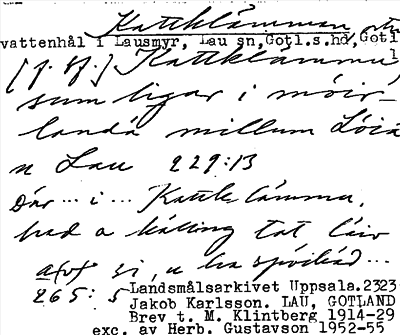 Kattklämman,
vattenhål i Lausmyr, Lau sn, Gotl.s.hd, Gotl
Kattklämmu
sum ligar i móir-
landä millum Lóiä
u Lau 229:13
Där ... i ... Kattklämmu,
had a käling tat
si, u ha
265: 5 Landsmålsarkivet Uppsala. 2323
Jakob Karlsson. LAU, GOTLAND
Brev t. M. Klintberg 1914-29
exc. av Herb. Gustavson 1952-55